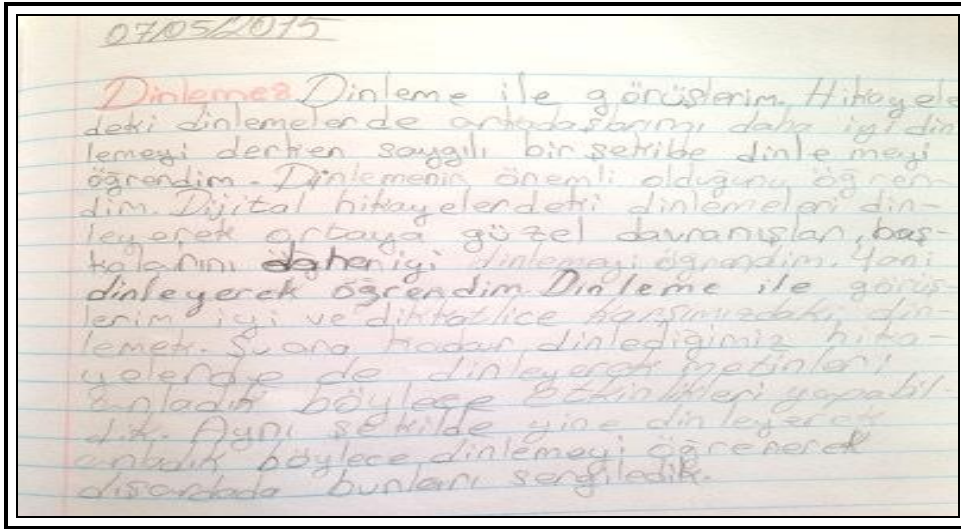 07/05/2015
Dinleme: Dinleme ile görüşlerim. Hikayele
deki dinlemelerde arkadaşlarımı daha iyi din
lemeyi derken saygılı bir şekilde dinle meyi
öğrendim. Dinlemenin önemli olduğunu öğren
dim. Dijital hikayelerdeki dinlemeleri din-
leyerek ortaya güzel davranışları, baş-
kalarını iyi dinlemeyi öğrendim. Yani
dinleyerek öğrendim. Dinleme ile görüş-
lerim iyi ve dikkatlice karşımızdaki din-
lemek. Şu ana kadar dinlediğimiz hika-
yelerdye de dinleyerek metinleri
anladık böylece etkinlikleri yapabil-
dik. Aynı şekilde yine dinleyerek
anladık böylece dinlemeyi öğrenerek
dısardada bunları sergiledik.